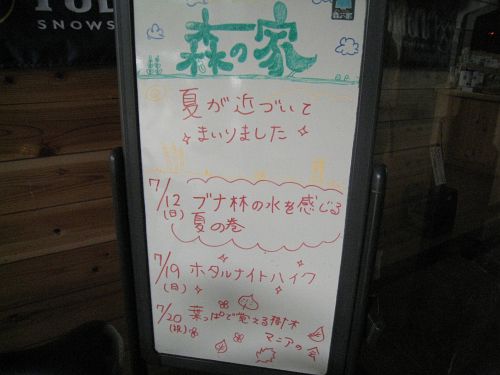 SNOWS
森の家
夏が近づいて
まいりました
7/12 ブナ林の水を感じる
(日) 夏の巻
7/19 ホタルナイトハイク
(日)
7/20 葉っぱで覚える樹木
(祝) マニアの会